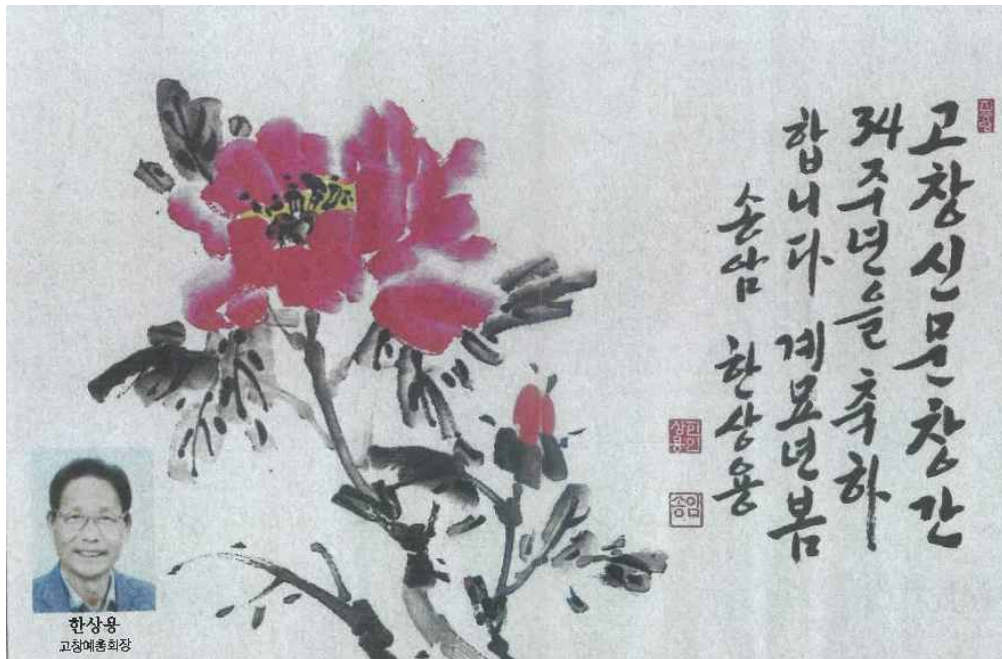 고창신문창간
34주년을 축하
합니다 계묘년봄
손암 한상용
한인
상용
송암
한상용
고창예총회장